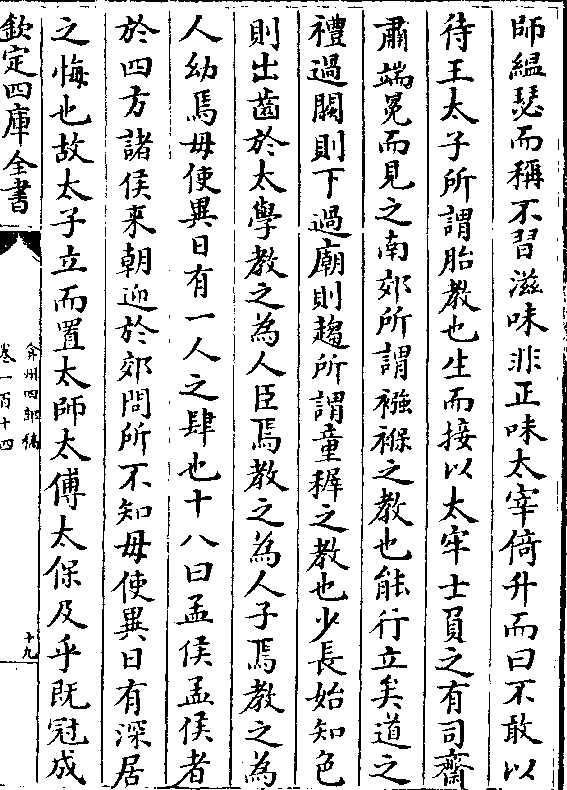 師緼瑟而稱不習滋味非正味太宰倚升而曰不敢以
待王太子所謂胎教也生而接以太牢士負之有司齋
肅端冕而見之南郊所謂襁褓之教也能行立矣道之
禮過闕則下過廟則趨所謂童穉之教也少長始知色
則出齒於太學教之為人臣焉教之為人子焉教之為
人幼焉毋使異日有一人之肆也十八曰孟侯孟侯者
於四方諸侯来朝迎於郊問所不知毋使異日有深居
之悔也故太子立而置太師太傅太保及乎既冠成
欽定四庫全書
弇州四部稿
卷一百十四
十九